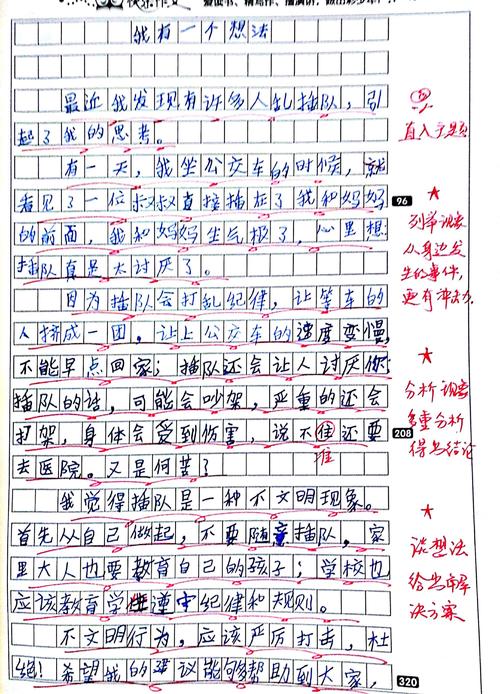 快乐作文
我有一个想法
最近我发现有许多人乱插队，引
起了我的思考。
直入主题
有一天，我坐公交车的时候，就
看见了一位叔叔直接插在了我和妈妈
96
的前面，我和妈妈生气极了，心里想：
插队真是太讨厌了。
列举现象
从身边发
生的事件，
更有冲击力
因为插队会打乱纪律，让等车的
人挤成一团，让上公交车的速度变慢，
不能早点回家；插队还会让人讨厌你；
插队的话，可能会吵架，严重的还会
打架，身体会受到伤害，说不住还要
208
准
去医院。又是何苦？
分析现象
多重分析
得出结论
我觉得插队是一种不文明现象。
首先从自己做起，不要随意插队。家
里大人也要教育自己的孩子；学校也
应该教育学生遵守纪律和规则。
谈想法
给出解
决方案
不文明行为，应该严厉打击，杜
绝！希望我的建议能够帮助到大家，
320